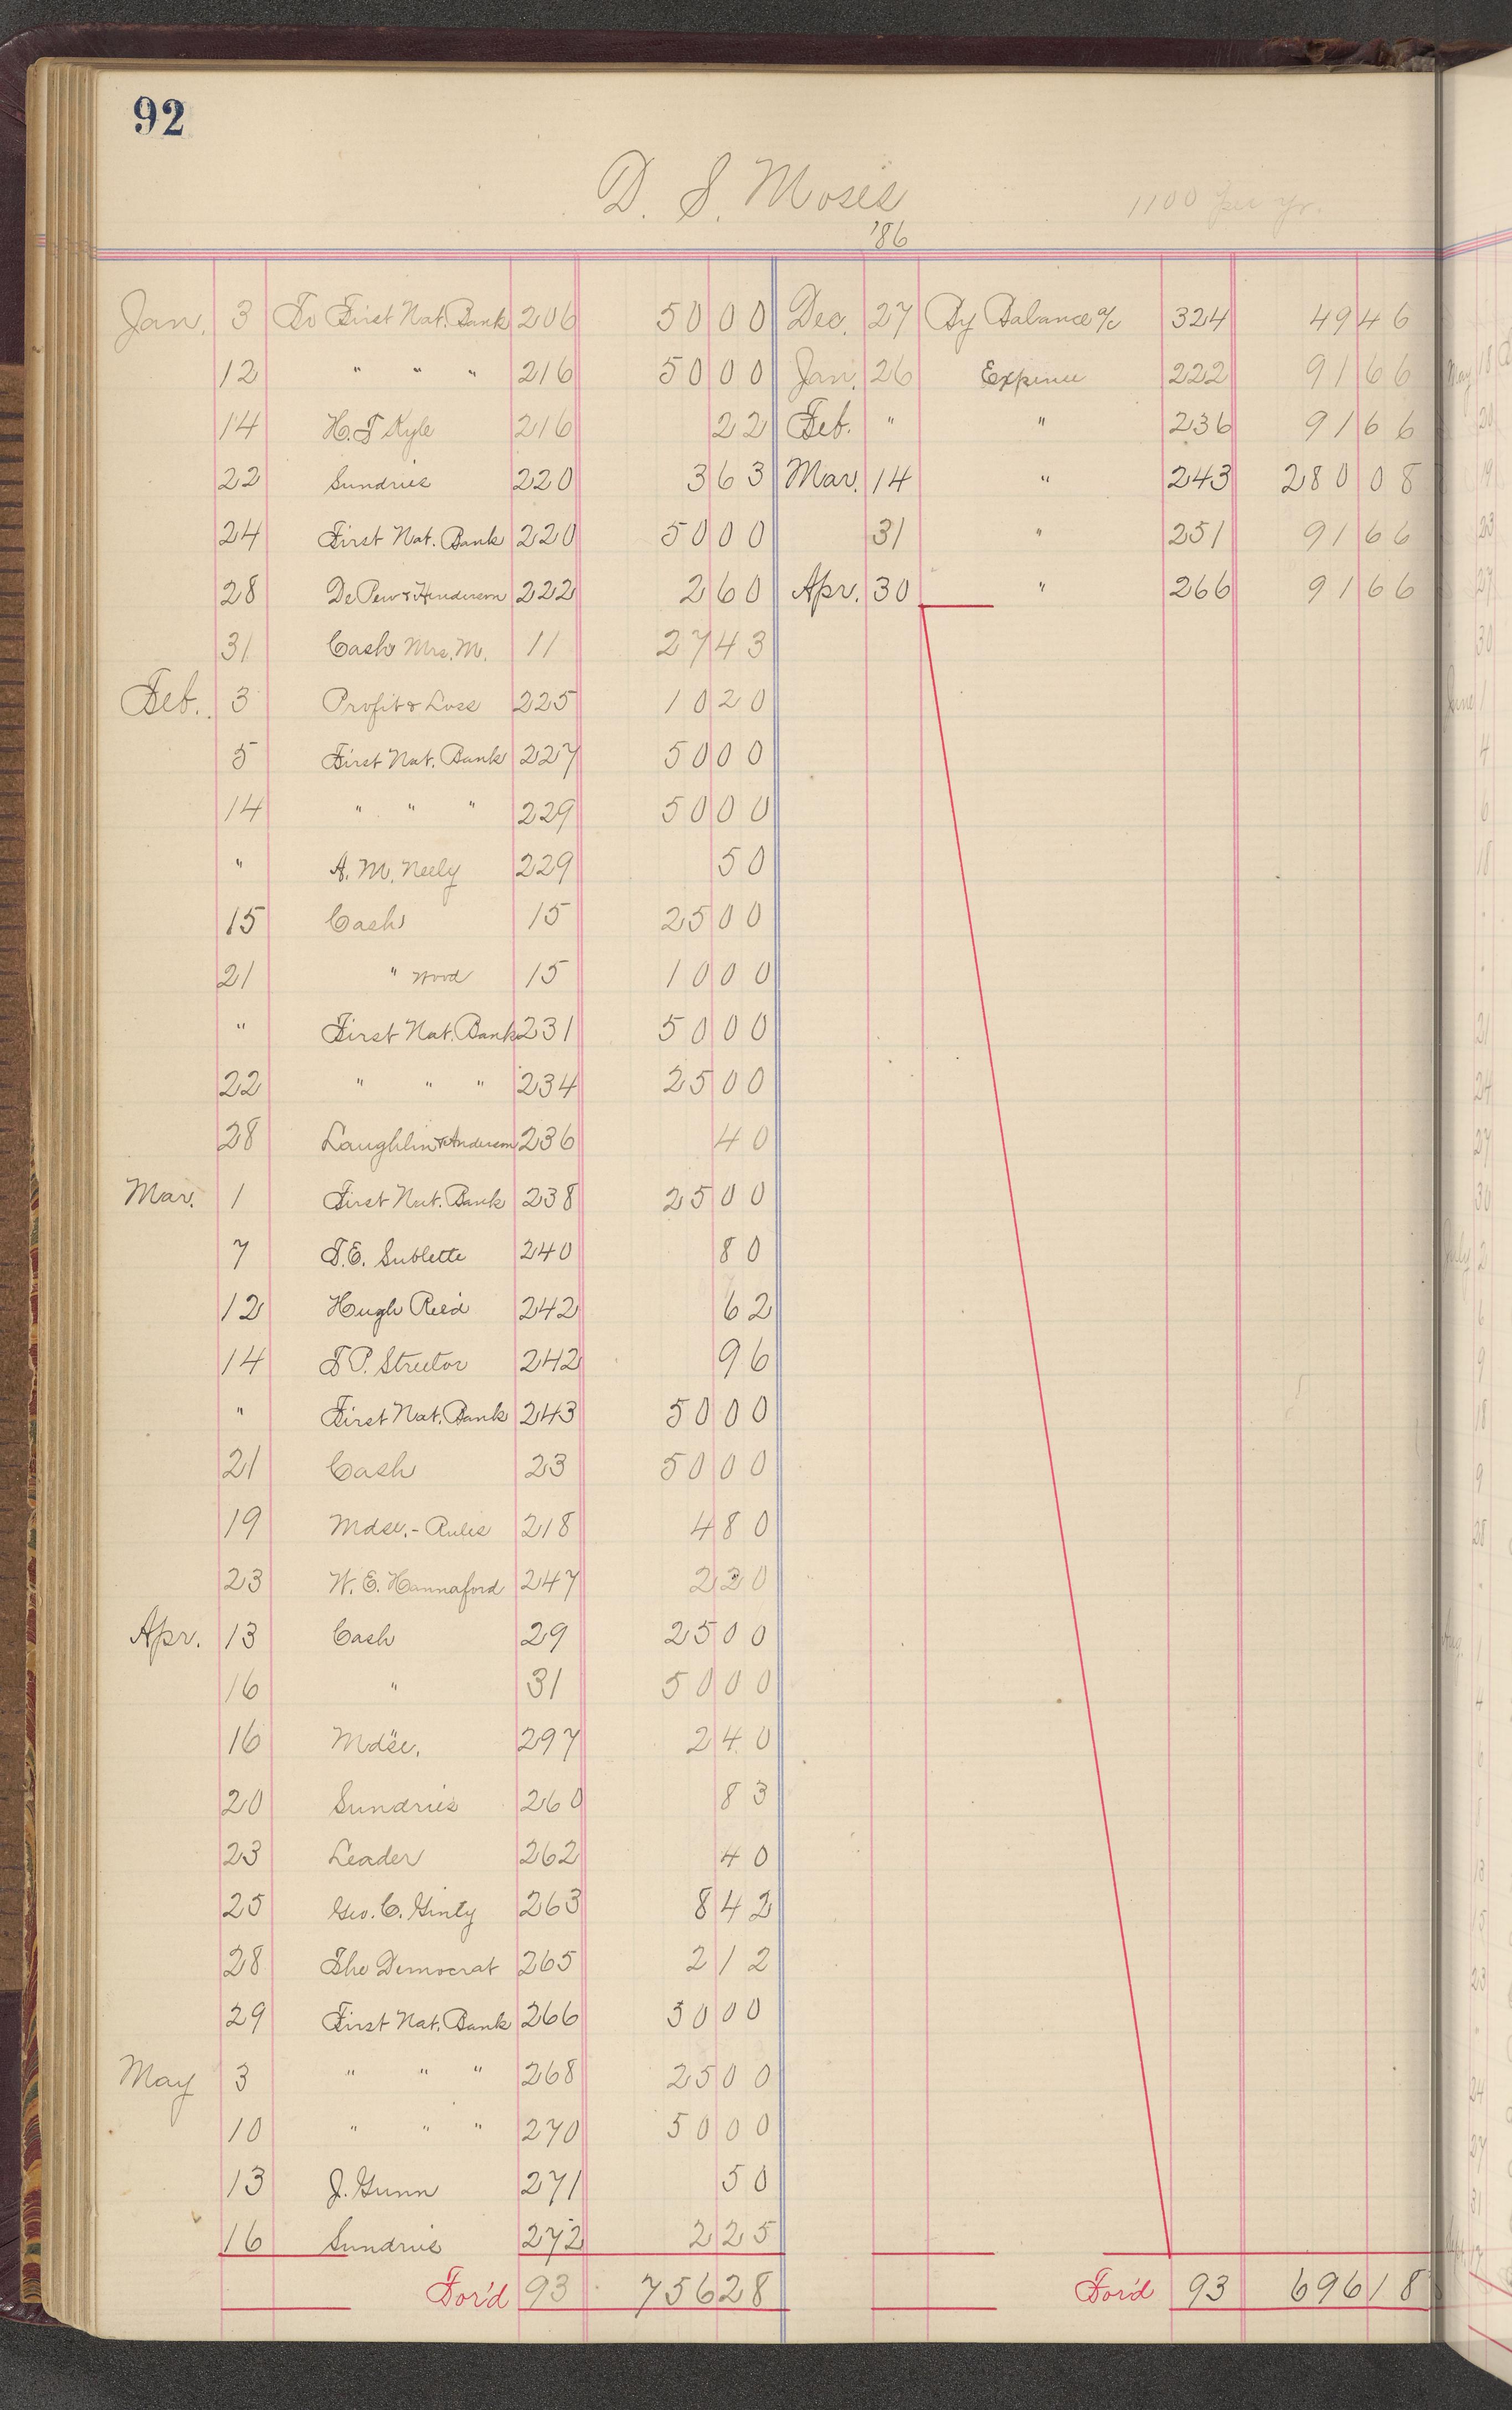 92
D. S. Moses
1100 per yr.
'86
Jan. 3 To First Nat. Bank 206 50 00
12 " " " 216 50 00
14 H. T Kyle 216 22
22 Sundries 220 3 63
24 First Nat. Bank 220 50 00
28 De Pew & Henderson 222 2 60
31 Cash Mrs. M. 11 27 43
Feb. 3 Profit & Loss 225 10 20
5 First Nat. Bank 227 50 00
14 " " " 229 50 00
" A. M. Neely 229 50
15 Cash 15 25 00
21 " Wood 15 10 00
" First Nat. Bank 231 50 00
22 " " " 234 25 00
28 Laughlin & Anderson 236 40
Mar. 1 First Nat. Bank 238 25 00
7 T. E. Sublette 240 80
12 Hugh Reid 242 62
14 T P. Streetor 242 96
" First Nat. Bank 243 50 00
21 Cash 23 50 00
19 Mdse. - Rules 218 4 80
23 W. E. Hannaford 247 2 20
Apr. 13 Cash 29 25 00
16 " 31 50 00
16 Mdse. 297 2 40
20 Sundries 260 83
23 Leader 262 40
25 Geo. C. Ginty 263 8 42
28 The Democrat 265 2 12
29 First Nat. Bank 266 30 00
May 3 " " " 268 25 00
10 " " " 270 50 00
13 J. Gunn 271 50
16 Sundries 272 2 25
For'd 93 756 28
Dec. 27 By Balance a/c 324 49 46
Jan. 26 Expense 222 91 66
Feb. " " 236 91 66
Mar. 14 " 243 280 08
31 " 251 91 66
Apr. 30 " 266 91 66
For'd 93 696 18
May 18
20
19
23
27
30
June 1
4
6
18
21
24
27
30
July 2
6
9
18
9
25
Aug. 1
4
6
8
13
15
23
24
27
31